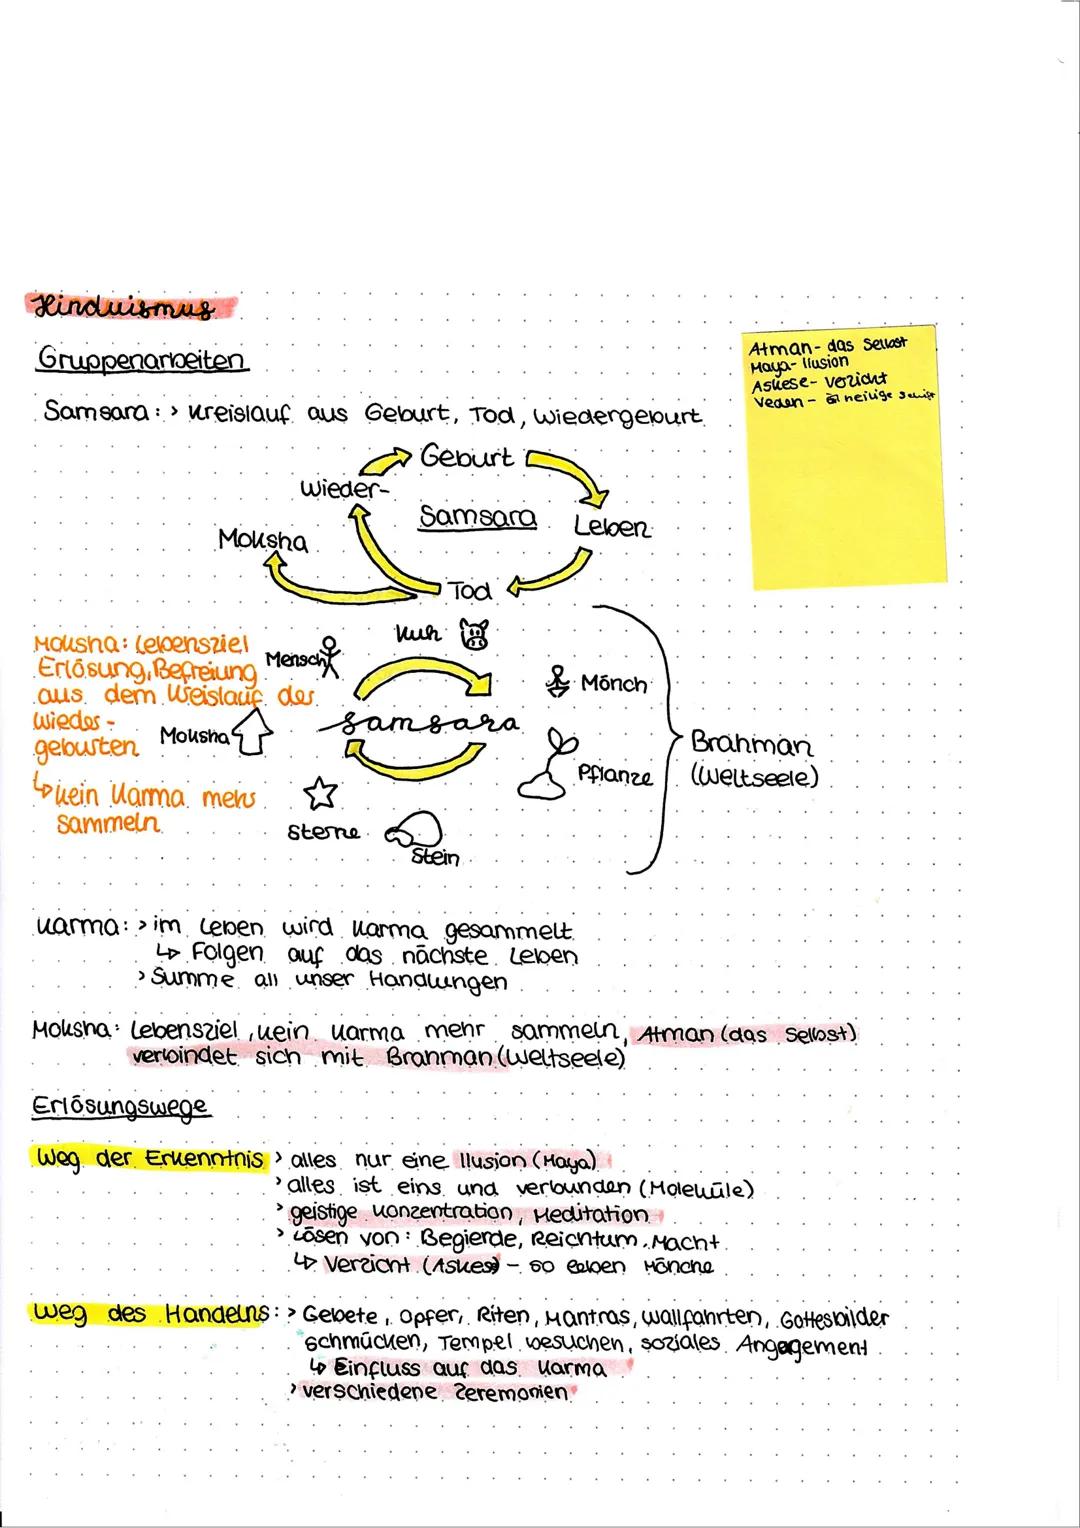 Hinduismus
Gruppenarbeiten
Atman- das Selbst
Maya- Ilusion
Askese- Verzicht
Veden - heilige Schrift
Samsara: > Kreislauf aus Geburt, Tod, Wiedergeburt
Geburt
Wieder-
Samsara
Leben
Moksha
Tod
Kuh
Moksha: Lebensziel
Erlösung, Befreiung
aus dem Kreislauf der
Wieder-
geburten
↳ kein Karma mehr
sammeln
Mensch
Mönch
Samsara
Moksha
Brahman
(Weltseele)
Pflanze
Sterne
Stein
Karma: > im Leben wird Karma gesammelt
↳ Folgen auf das nächste Leben
> Summe all unser Handlungen
Moksha: Lebensziel, kein Karma mehr sammeln, Atman (das Selbst)
verbindet sich mit Brahman (Weltseele)
Erlösungswege
Weg der Erkenntnis > alles nur eine Ilusion (Maya)
> alles ist eins und verbunden (Moleküle)
> geistige Konzentration, Meditation
> Lösen von: Begierde, Reichtum, Macht
↳ Verzicht (Askese) - so leben Mönche
Weg des Handelns: > Gebete, Opfer, Riten, Mantras, Wallfahrten, Gottesbilder
schmücken, Tempel besuchen, soziales Angagement
↳ Einfluss auf das Karma
> verschiedene Zeremonien